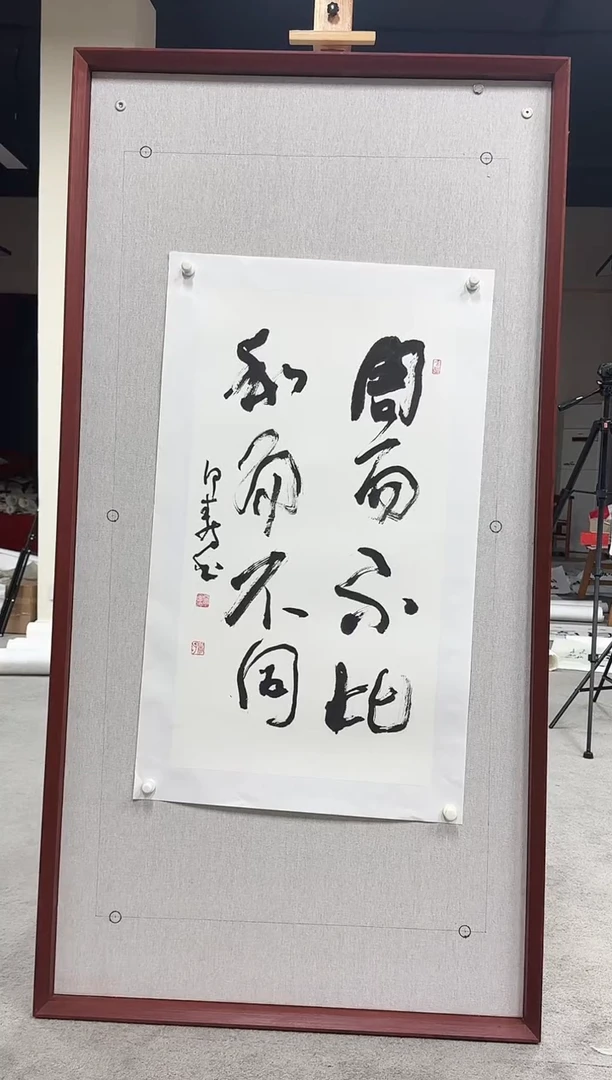 周而不比
和而不同